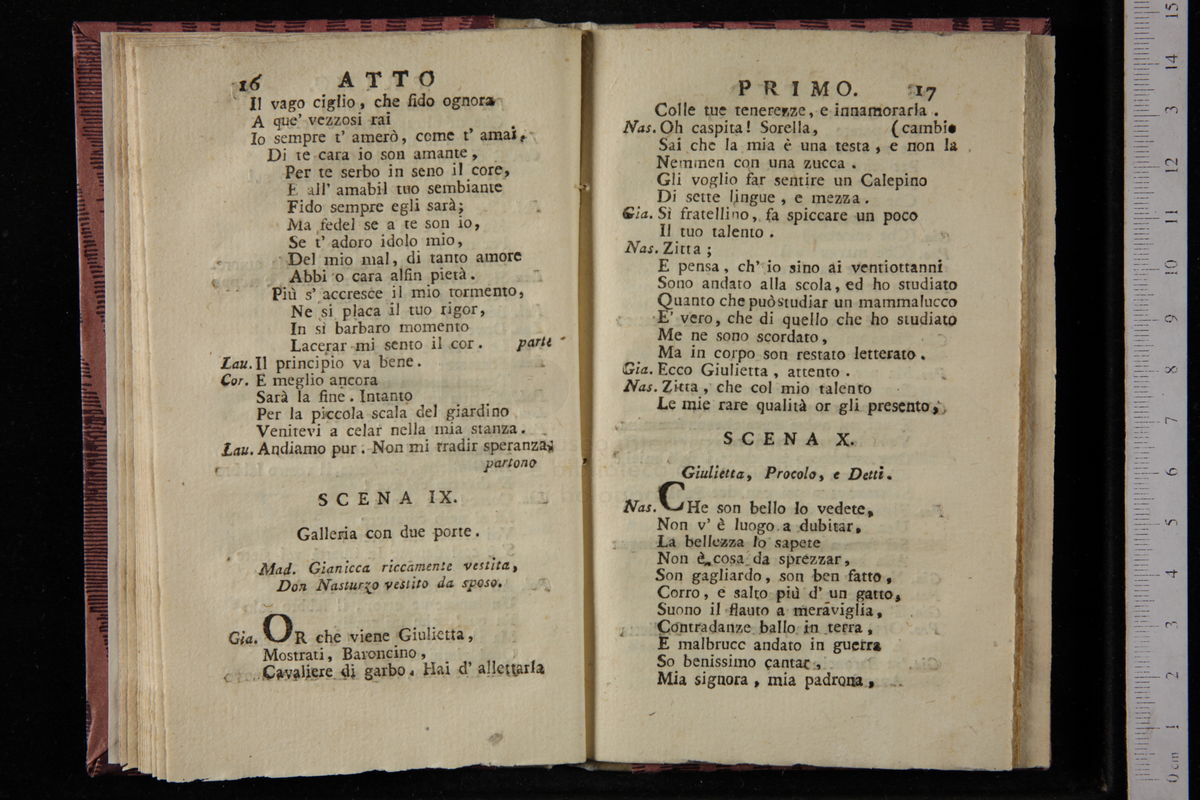 16 ATTO
Il vago ciglio, che fido ognora
A que' vezzosi rai
Io sempre t' amerò, come t' amai,
Di te cara io son amante,
Per te serbo in seno il core,
E all' amabil tuo sembiante
Fido sempre egli sarà;
Ma fedel se a te son io,
Se t' adoro idolo mio,
Del mio mal, di tanto amore
Abbi o cara alfin pietà.
Più s' accresce il mio tormento,
Ne si placa il tuo rigor,
In sì barbaro momento
Lacerar mi sento il cor. parte
Lau. Il principio va bene.
Cor. E meglio ancora
Sarà la fine. Intanto
Per la piccola scala del giardino
Venitevi a celar nella mia stanza.
Lau. Andiamo pur. Non mi tradir speranza;
partono
SCENA IX.
Galleria con due porte.
Mad. Gianicca riccamente vestita,
Don Nasturzo vestito da sposo.
Gia. OR che viene Giulietta,
Mostrati, Baroncino,
Cavaliere di garbo. Hai d' allettarla
PRIMO. 17
Colle tue tenerezze, e innamorarla.
Nas. Oh caspita! Sorella, (cambio
Sai che la mia è una testa, e non la
Nemmen con una zucca.
Gli voglio far sentire un Calepino
Di sette lingue, e mezza.
Gia. Sì fratellino, fa spiccare un poco
Il tuo talento.
Nas. Zitta;
E pensa, ch' io sino ai ventiottanni
Sono andato alla scola, ed ho studiato
Quanto che può studiar un mammalucco
E' vero, che di quello che ho studiato
Me ne sono scordato,
Ma in corpo son restato letterato.
Gia. Ecco Giulietta, attento.
Nas. Zitta, che col mio talento
Le mie rare qualità or gli presento,
SCENA X.
Giulietta, Procolo, e Detti.
Nas. CHe son bello lo vedete,
Non v' è luogo a dubitar,
La bellezza lo sapete
Non è cosa da sprezzar,
Son gagliardo, son ben fatto,
Corro, e salto più d' un gatto,
Suono il flauto a meraviglia,
Contradanze ballo in terra,
E malbrucc andato in guerra
So benissimo cantar,
Mia signora, mia padrona,
0 cm 1 2 3 4 5 6 7 8 9 10 11 12 13 14 15